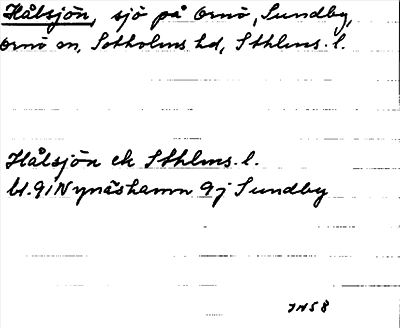 Hålsjön, sjö på Ornö, Sundby,
Ornö sn, Sotholms hd, Sthlms. l.
Hålsjön ek Sthlms. l.
bl. 9i Nynäshamn 9j Sundby
JN58